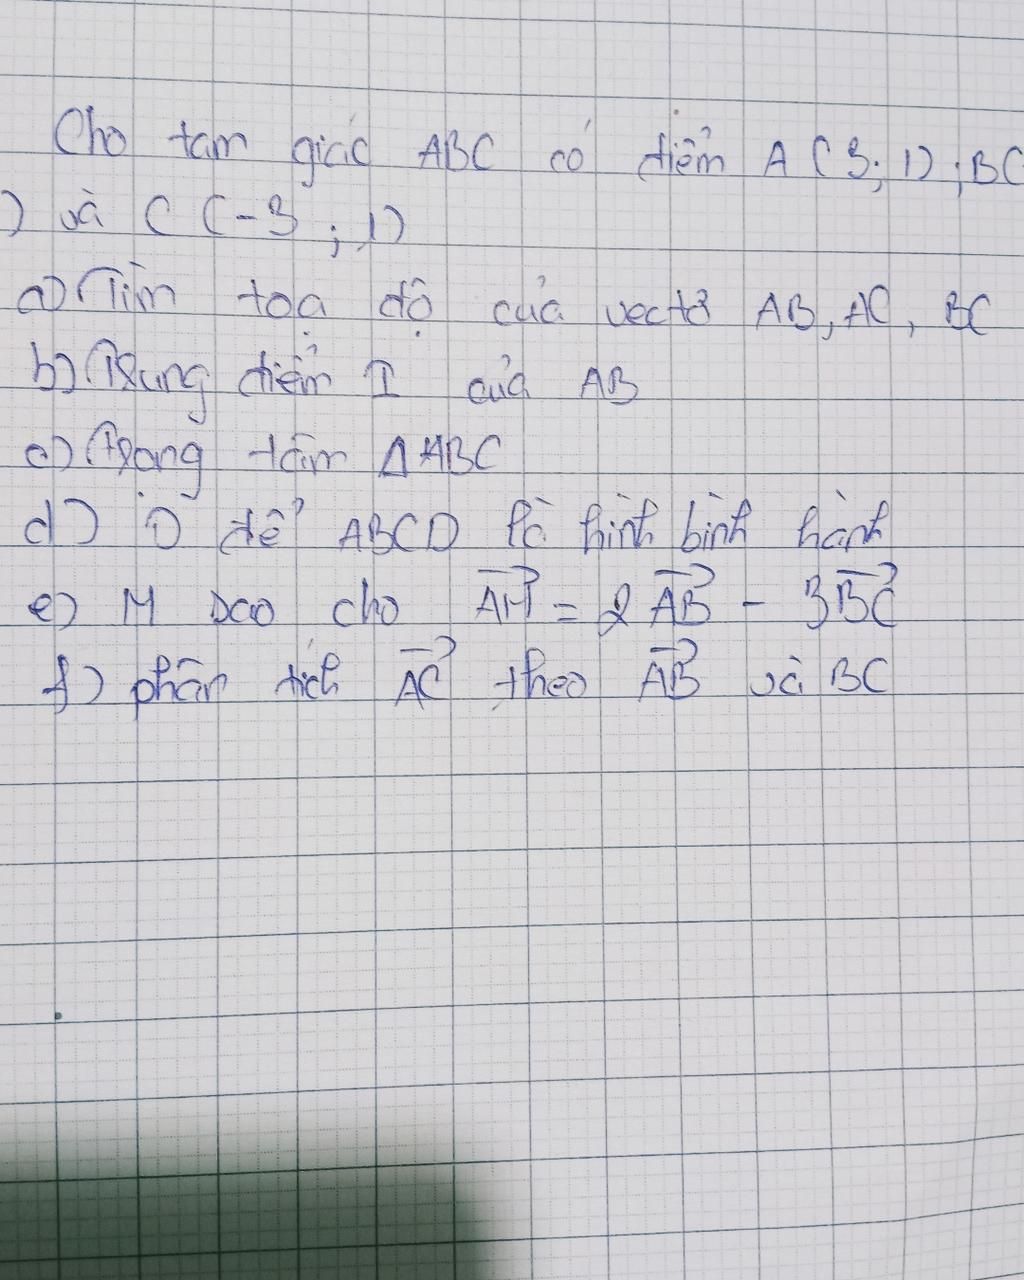 Cho tam giác ABC có điểm A (3; 1); BC
) và C (-3; 1)
a) Tìm toạ độ của vectơ AB, AC, BC
b) Trung điểm I của AB
c) Trọng tâm Δ ABC
d) D để ABCD là hình bình hành
e) M sao cho AM = 2 AB - 3 BC
f) phân tích AC theo AB và BC